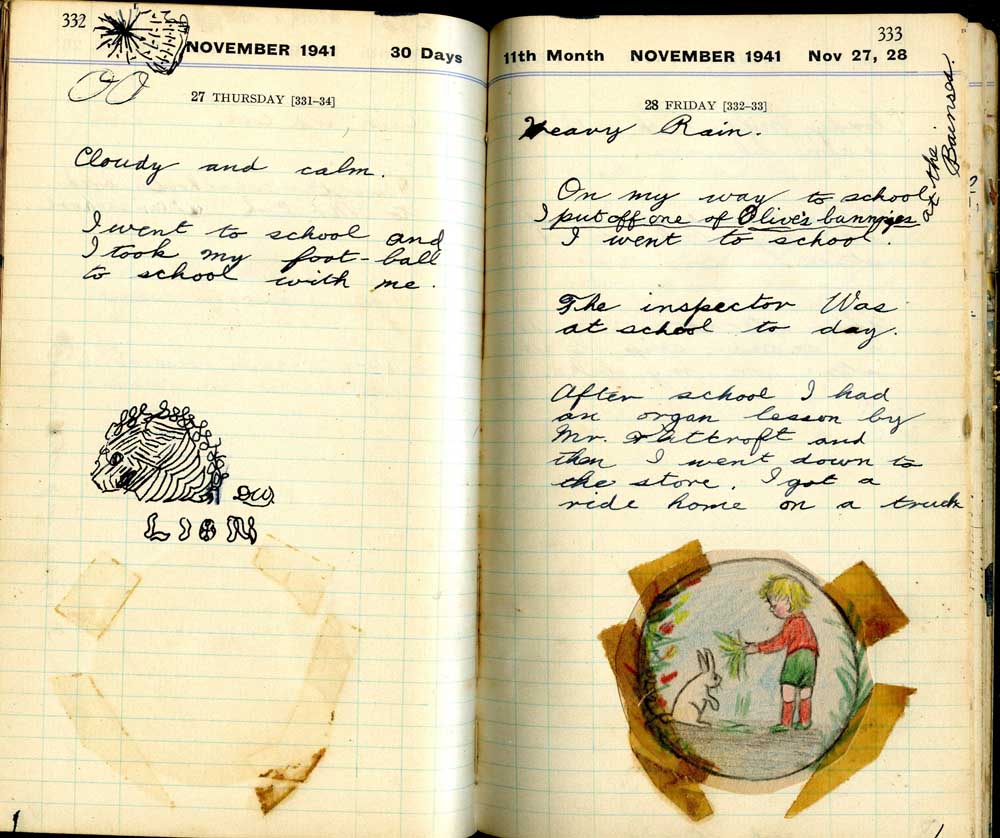 332
NOVEMBER 1941 30 Days
27 THURSDAY [331–34]
Cloudy and calm.
I went to school and
I took my foot-ball
to school with me.
D.W.
LION
333
11th Month NOVEMBER 1941 Nov 27, 28
28 FRIDAY [332–33]
Heavy Rain.
On my way to school
I put off one of Olive's bunnies
at the
Bainses.
I went to school.
The inspector Was
at school to day.
After school I had
an organ lesson by
Mr. and
then I went down to
the store. I got a
ride home on a truck